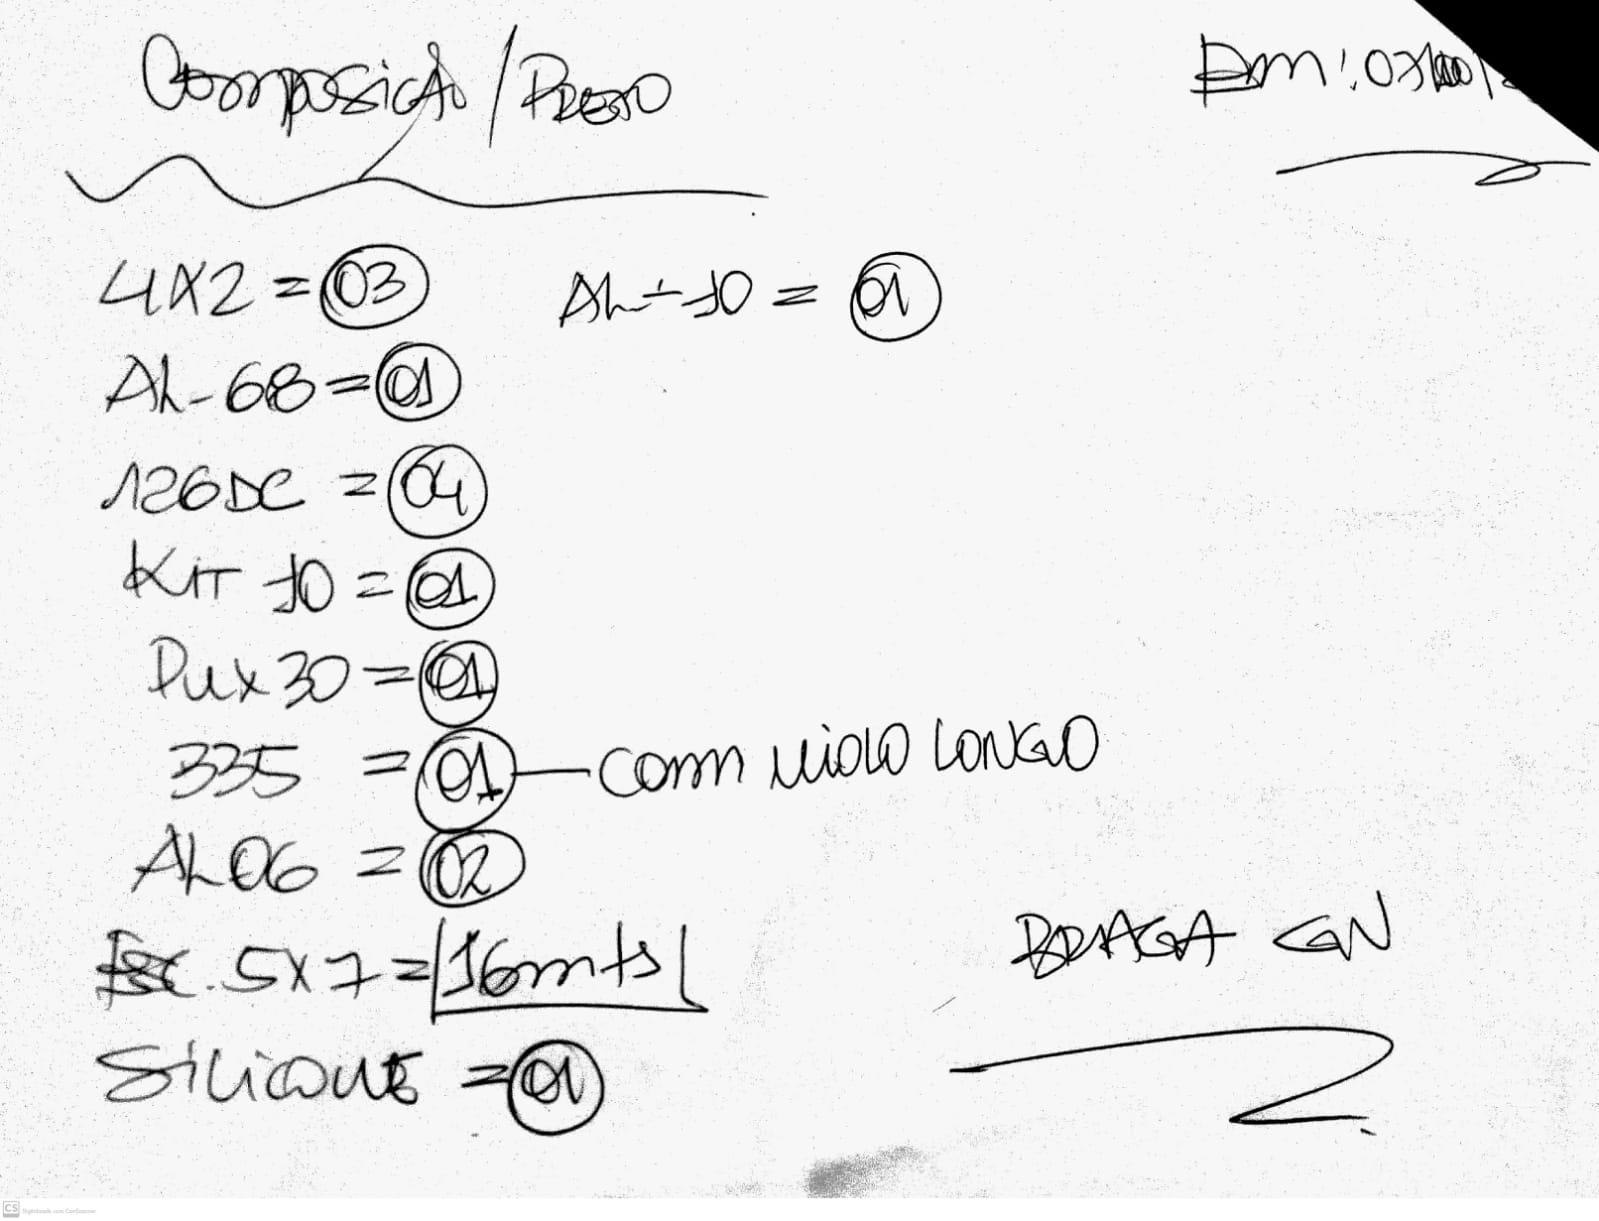 Composição / Preto
Em: 03/
4X2 = 03
AL-10 = 01
AL-68 = 01
126DC = 04
KIT 10 = 01
Pux 30 = 01
335 = 01 — com miolo LONGO
AL06 = 02
Esc. 5X7 = 16mts
BRAGA GN
Silicone = 01
CS Digitalizado com CamScanner